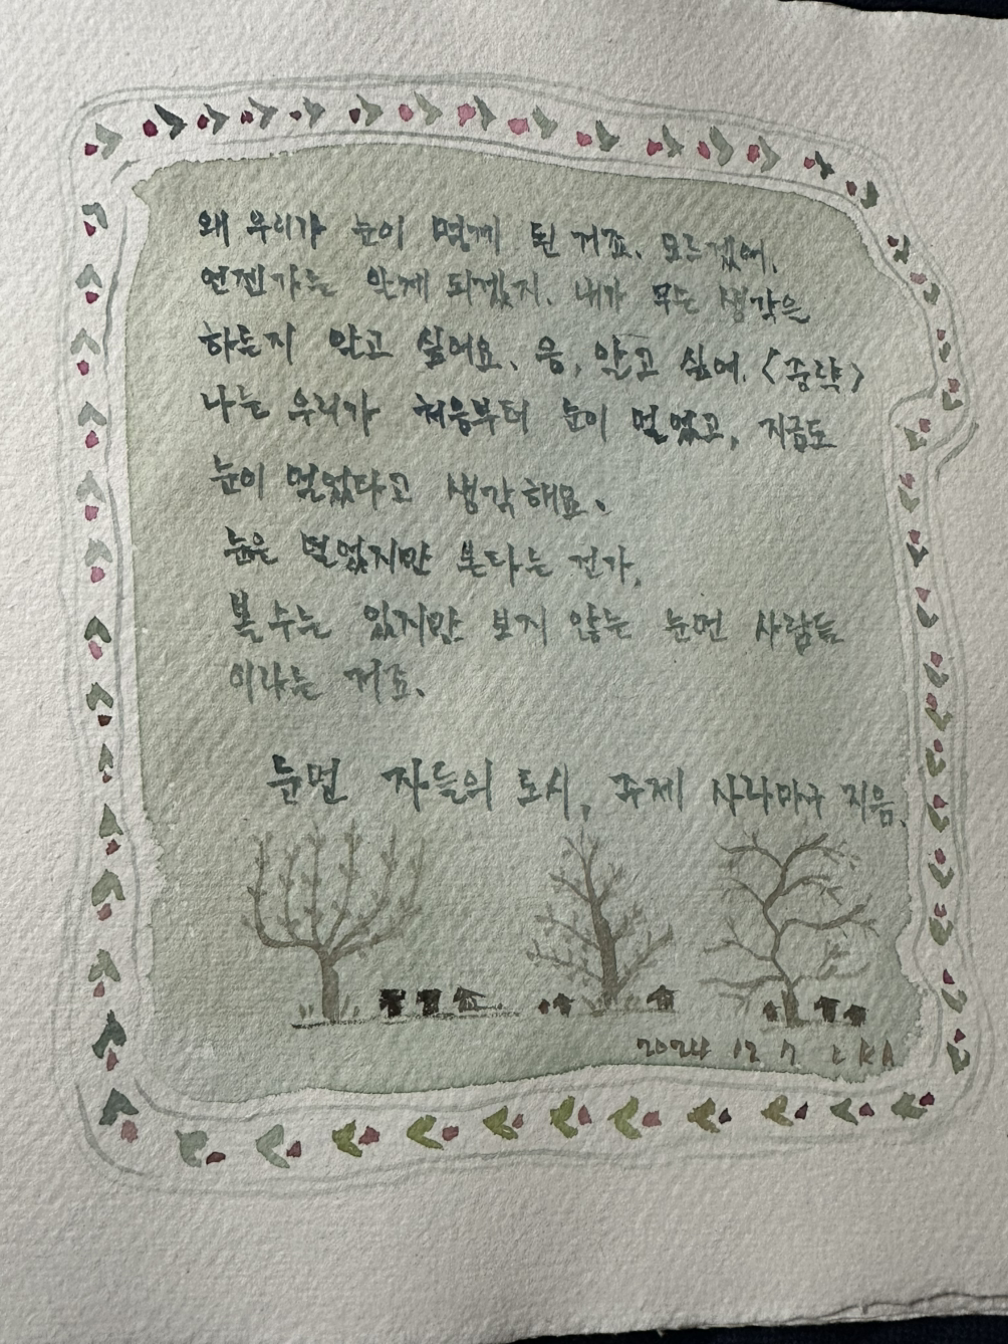 왜 우리가 눈이 멀게 된 거죠. 모르겠어.
언젠가는 알게 되겠지. 내가 무슨 생각을
하는지 알고 싶어요. 응, 알고 싶어. <중략>
나는 우리가 처음부터 눈이 멀었고, 지금도
눈이 멀었다고 생각해요.
눈은 멀었지만 본다는 건가,
볼 수는 있지만 보지 않는 눈먼 사람들
이라는 거죠.
눈먼 자들의 도시, 주제 사라마구 지음.
2024 12 7